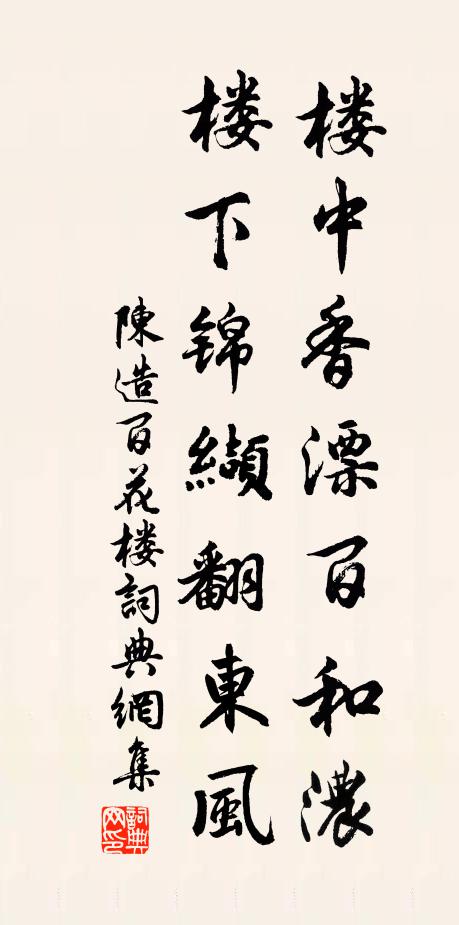 楼中香漂百和濃
楼下锦纈翻東風
陳造百花楼詞典網集
詞典網印